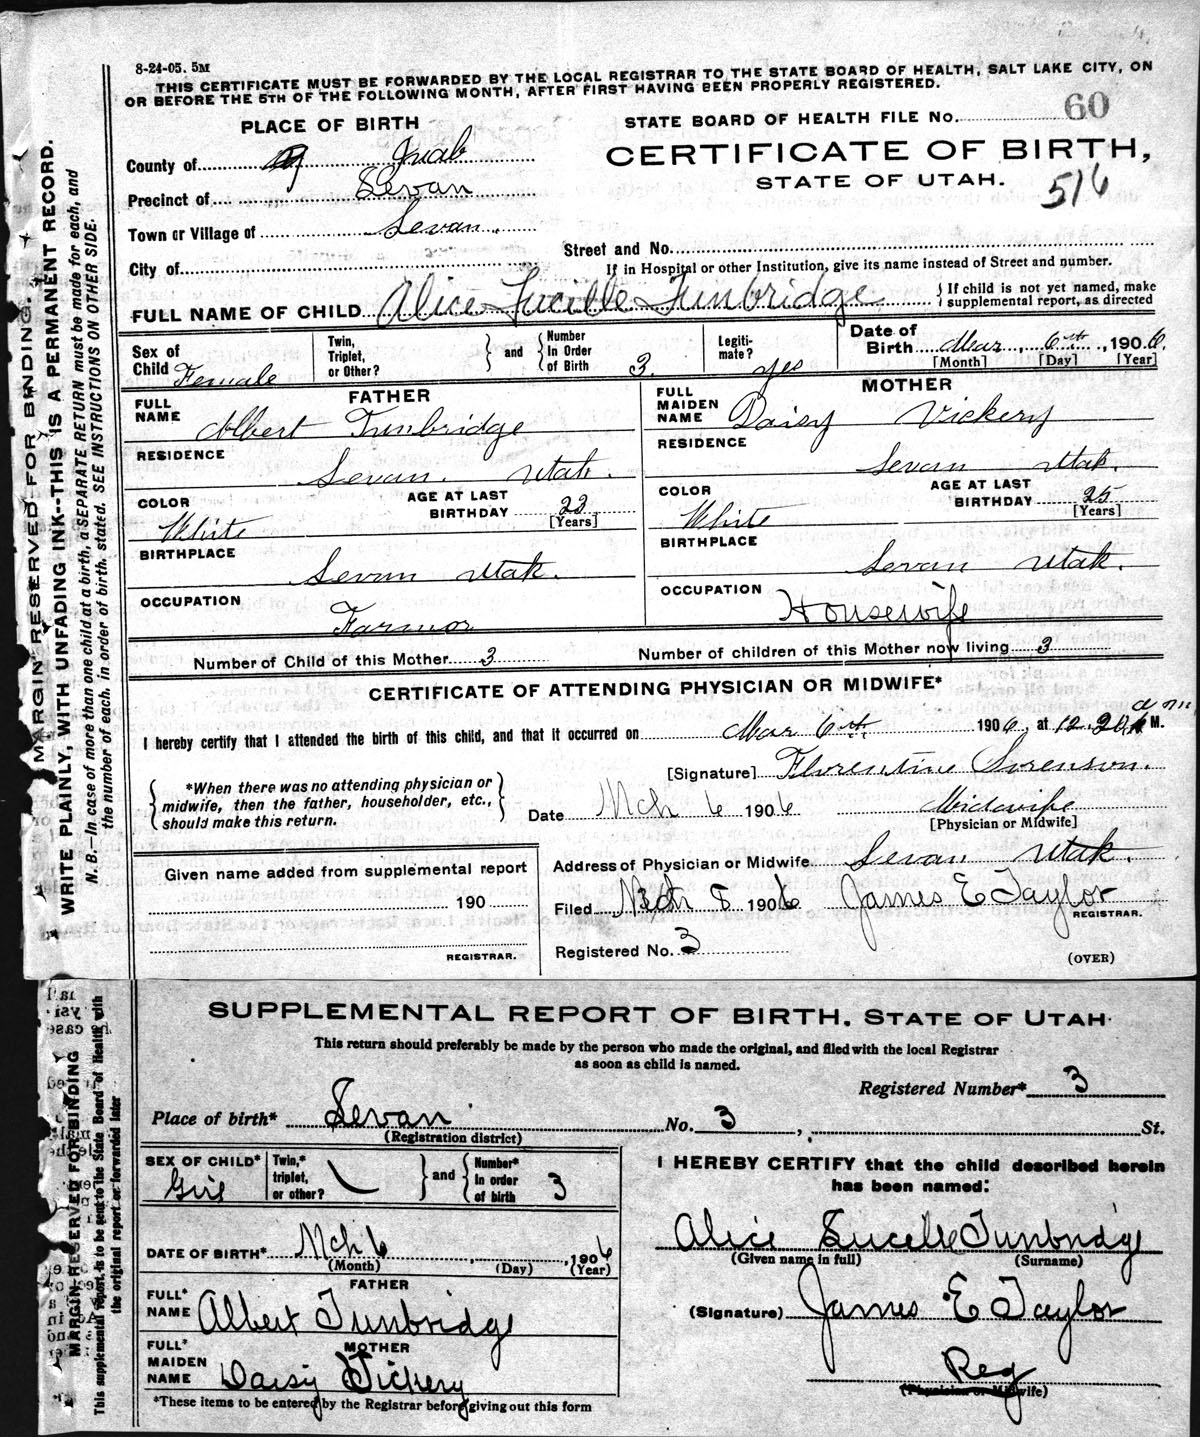 8-24-05. 5M
THIS CERTIFICATE MUST BE FORWARDED BY THE LOCAL REGISTRAR TO THE STATE BOARD OF HEALTH, SALT LAKE CITY, ON
OR BEFORE THE 5TH OF THE FOLLOWING MONTH, AFTER FIRST HAVING BEEN PROPERLY REGISTERED.
PLACE OF BIRTH
STATE BOARD OF HEALTH FILE No. 60
County of Juab
CERTIFICATE OF BIRTH,
STATE OF UTAH.
516
Precinct of Levan
Town or Village of Levan.
City of
Street and No.
If in Hospital or other Institution, give its name instead of Street and number.
FULL NAME OF CHILD Alice Lucille Tunbridge { If child is not yet named, make supplemental report, as directed
Sex of Child Female
Twin, Triplet, or Other? } and { Number In Order of Birth 3.
Legiti-mate? yes
Date of Birth Mar, 6th, 1906.
[Month] [Day] [Year]
FATHER
FULL NAME Albert Tunbridge
MOTHER
FULL MAIDEN NAME Daisy Vickery
RESIDENCE Levan. Utah.
RESIDENCE Levan Utah.
COLOR White
AGE AT LAST BIRTHDAY 23 [Years]
COLOR White
AGE AT LAST BIRTHDAY 25 [Years]
BIRTHPLACE Levan Utah.
BIRTHPLACE Levan Utah.
OCCUPATION Farmor
OCCUPATION Housewife
Number of Child of this Mother 3
Number of children of this Mother now living 3
CERTIFICATE OF ATTENDING PHYSICIAN OR MIDWIFE*
I hereby certify that I attended the birth of this child, and that it occurred on Mar 6th. 1906, at 12.20 a m M.
[Signature] Florentine Sorenson.
{ *When there was no attending physician or midwife, then the father, householder, etc., should make this return. }
Date Mch 6 1906
Midwife
[Physician or Midwife]
Given name added from supplemental report
190
REGISTRAR.
Address of Physician or Midwife Levan Utah.
Filed Mch 8 1906 James E Taylor
REGISTRAR.
Registered No. 3
(OVER)
MARGIN RESERVED FOR BINDING.
WRITE PLAINLY, WITH UNFADING INK--THIS IS A PERMANENT RECORD.
N. B.—In case of more than one child at a birth, a SEPARATE RETURN must be made for each, and
the number of each, in order of birth, stated. SEE INSTRUCTIONS ON OTHER SIDE.
SUPPLEMENTAL REPORT OF BIRTH. STATE OF UTAH
This return should preferably be made by the person who made the original, and filed with the local Registrar
as soon as child is named.
Registered Number* 3
Place of birth* Levan No. 3, St.
(Registration district)
SEX OF CHILD* Girl
Twin,* triplet, or other? } and { Number* In order of birth 3
I HEREBY CERTIFY that the child described herein
has been named:
DATE OF BIRTH* Mch 6, 1906
(Month) (Day) (Year)
Alice Lucelle Tunbridge
(Given name in full) (Surname)
FATHER
FULL* NAME Albert Tunbridge
(Signature) James E Taylor
MOTHER
FULL* MAIDEN NAME Daisy Vickery
Reg
(Physician or Midwife)
*These items to be entered by the Registrar before giving out this form
MARGIN RESERVED FOR BINDING
This supplemental report is to be sent to the State Board of Health with
the original report or forwarded later